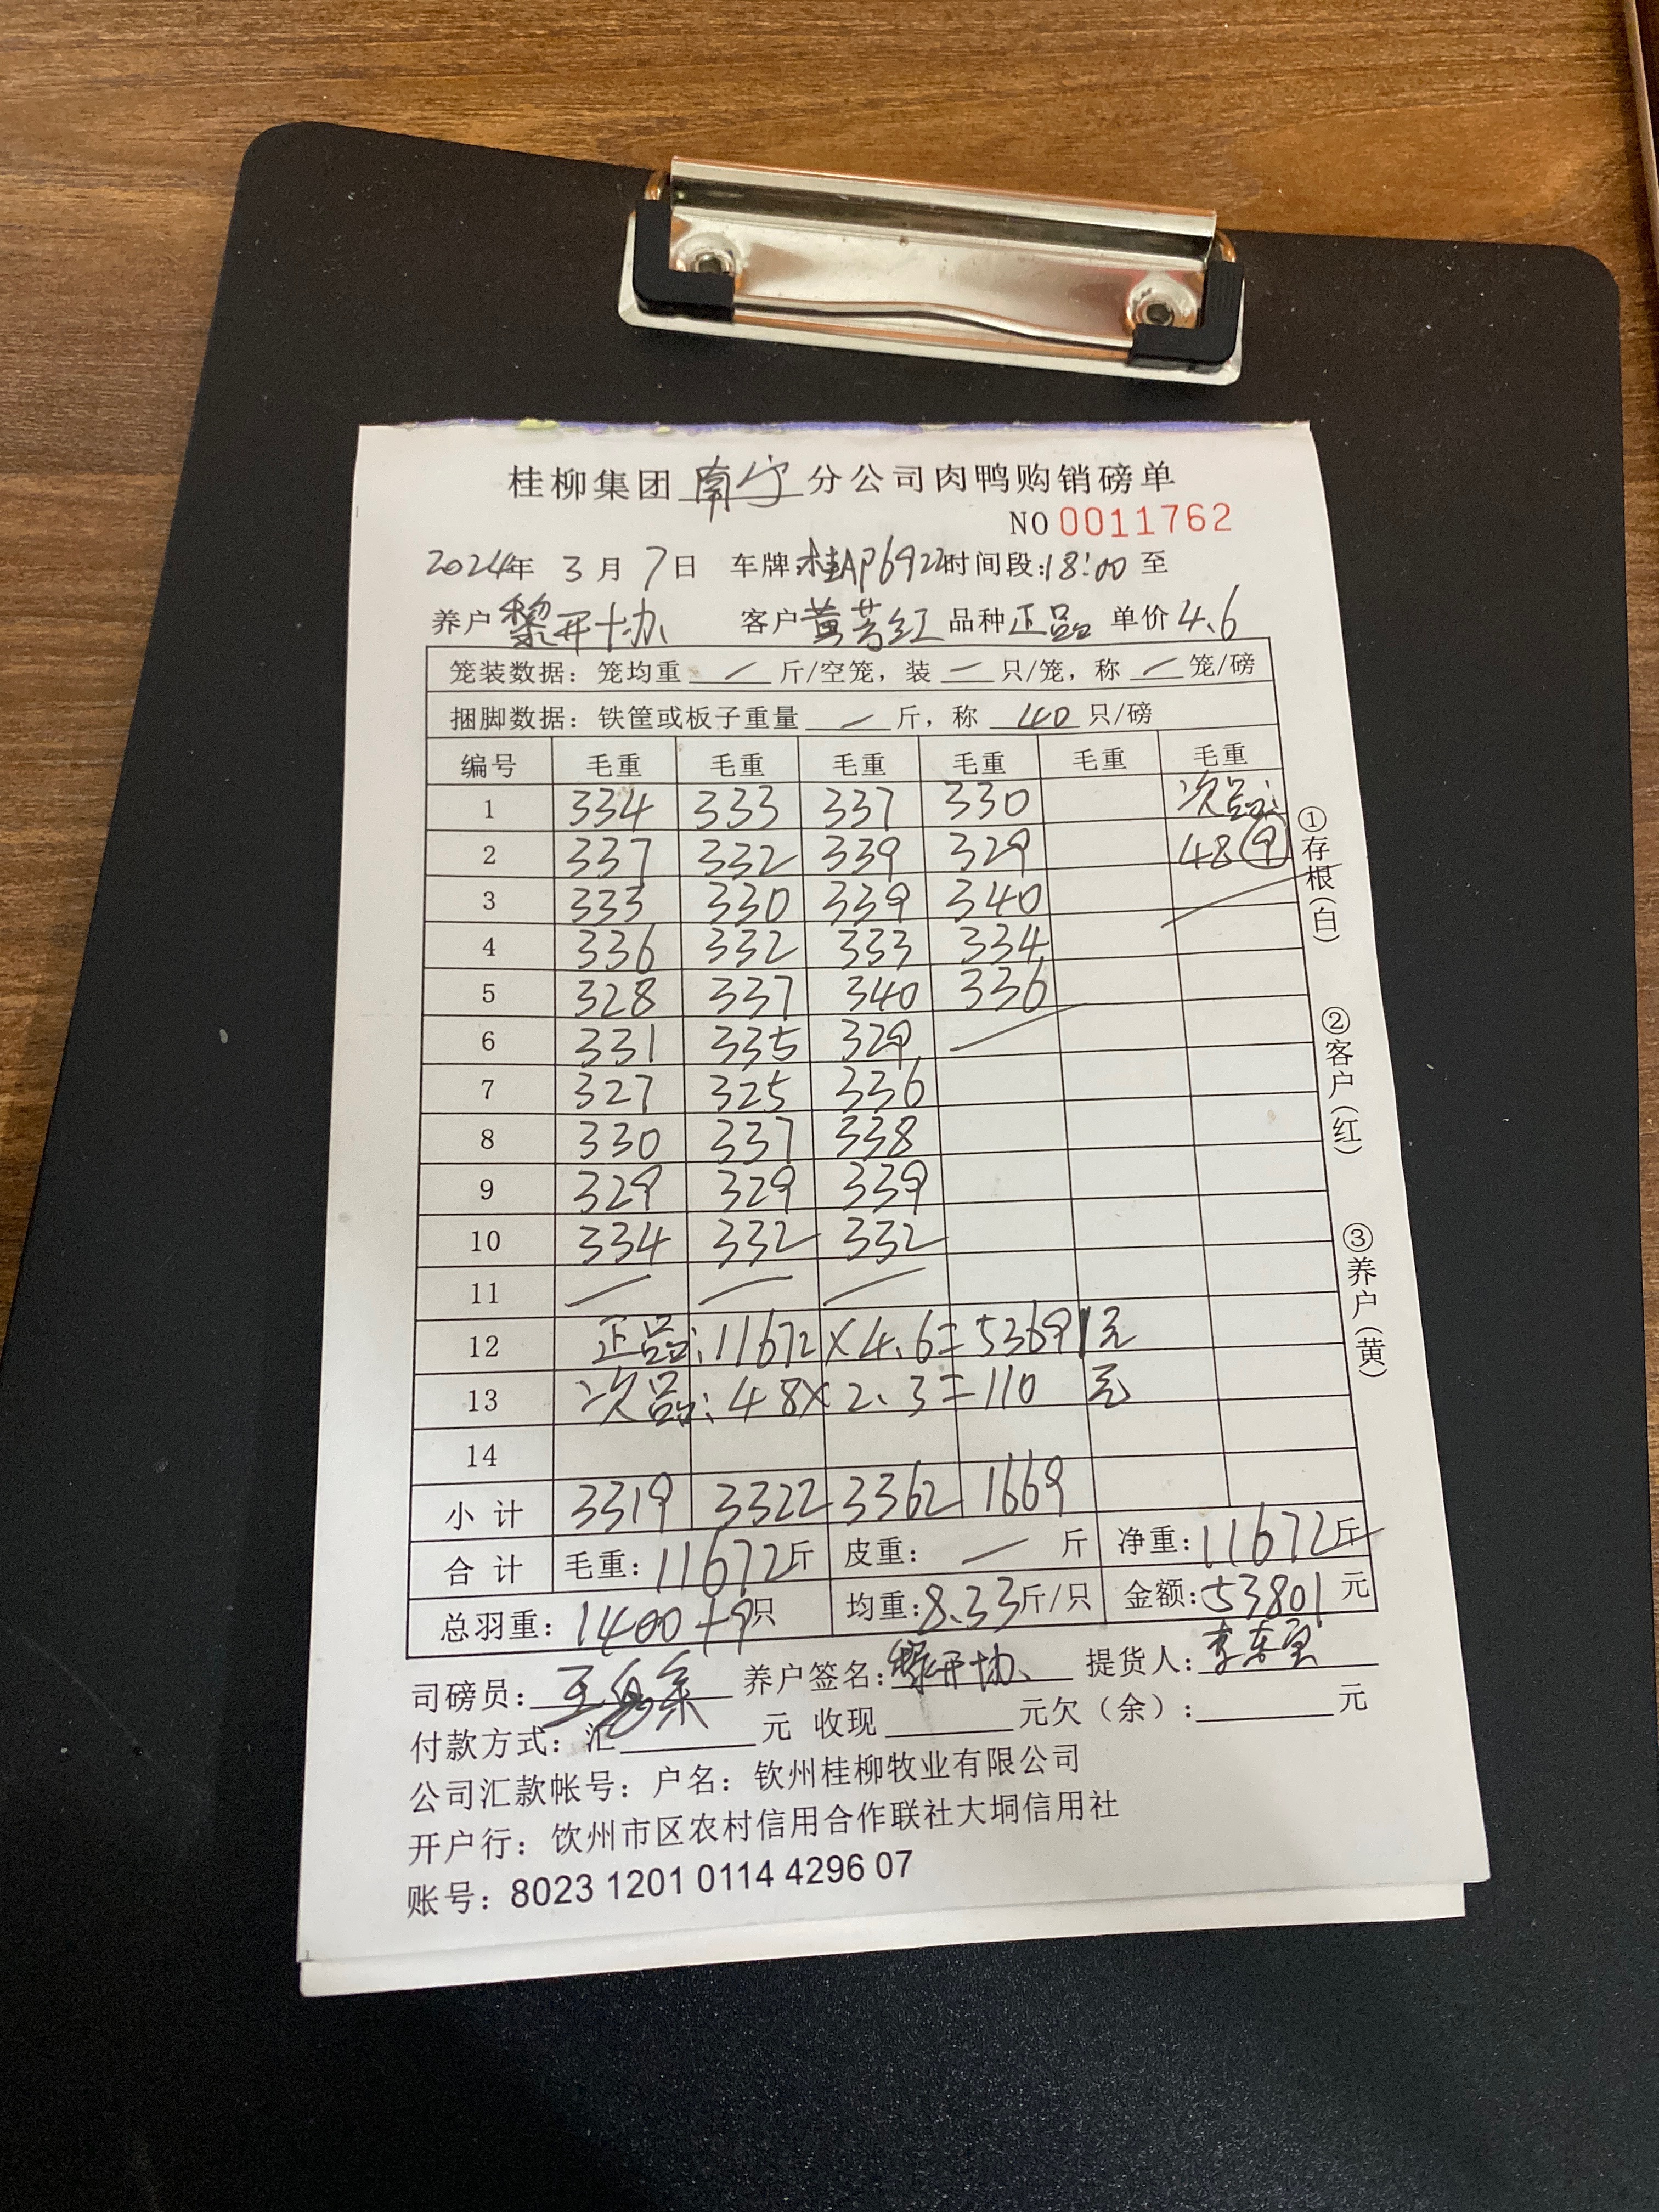 桂柳集团南宁分公司肉鸭购销磅单
NO 0011762
2024年 3月 7日 车牌:桂AP6922 时间段:18:00 至
养户 黎开协 客户 黄芳红 品种 正品 单价 4.6
笼装数据: 笼均重 — 斤/空笼, 装 — 只/笼, 称 — 笼/磅
捆脚数据: 铁筐或板子重量 — 斤, 称 40 只/磅
编号 毛重 毛重 毛重 毛重 毛重 毛重
1 334 333 337 330 次品:
2 337 332 339 329 48⑨
3 333 330 339 340
4 336 332 333 334
5 328 337 340 336
6 331 335 329 —
7 327 325 336
8 330 337 338
9 329 329 339
10 334 332 332
11 — — —
12 正品:11672×4.6=53691元
13 次品:48×2.3=110 元
14
小计 3319 3322 3362 1669
合计 毛重:11672斤 皮重: — 斤 净重:11672斤
总羽重:1400+9只 均重:8.33斤/只 金额:53801元
司磅员: 养户签名:黎开协 提货人:
付款方式: 汇 元 收现 元欠(余): 元
公司汇款帐号: 户名: 钦州桂柳牧业有限公司
开户行: 饮州市区农村信用合作联社大垌信用社
账号: 8023 1201 0114 4296 07
①存根(白)
②客户(红)
③养户(黄)